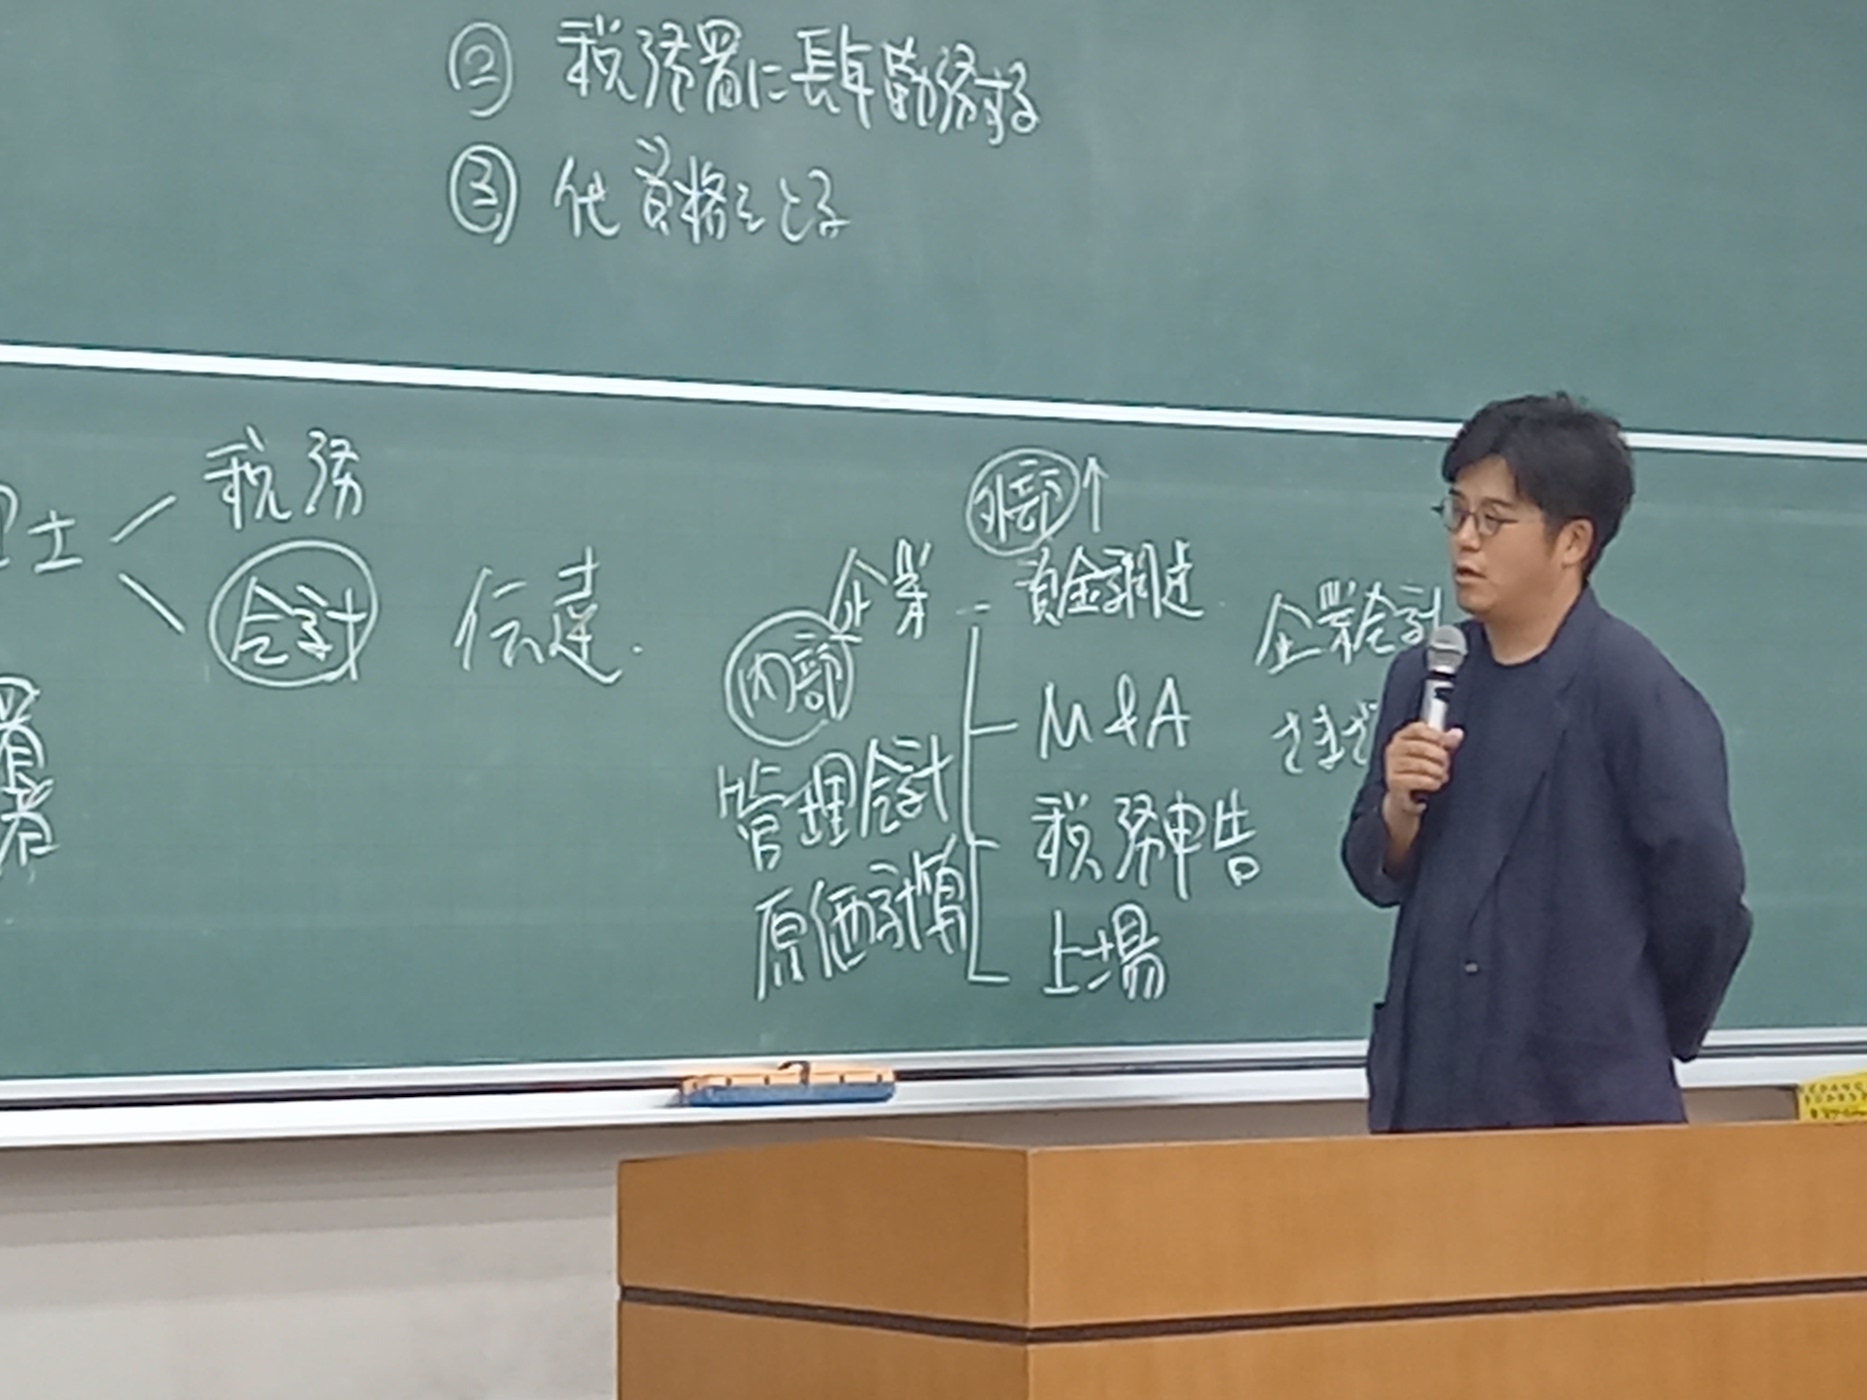 ② 税務署に長年勤務する
③ 他資格をとる
士
税務
会計
伝達.
企業
外部↑
資金調達
M&A
税務申告
上場
内部
管理会計
原価計算
企業会計
さまざ
署
者